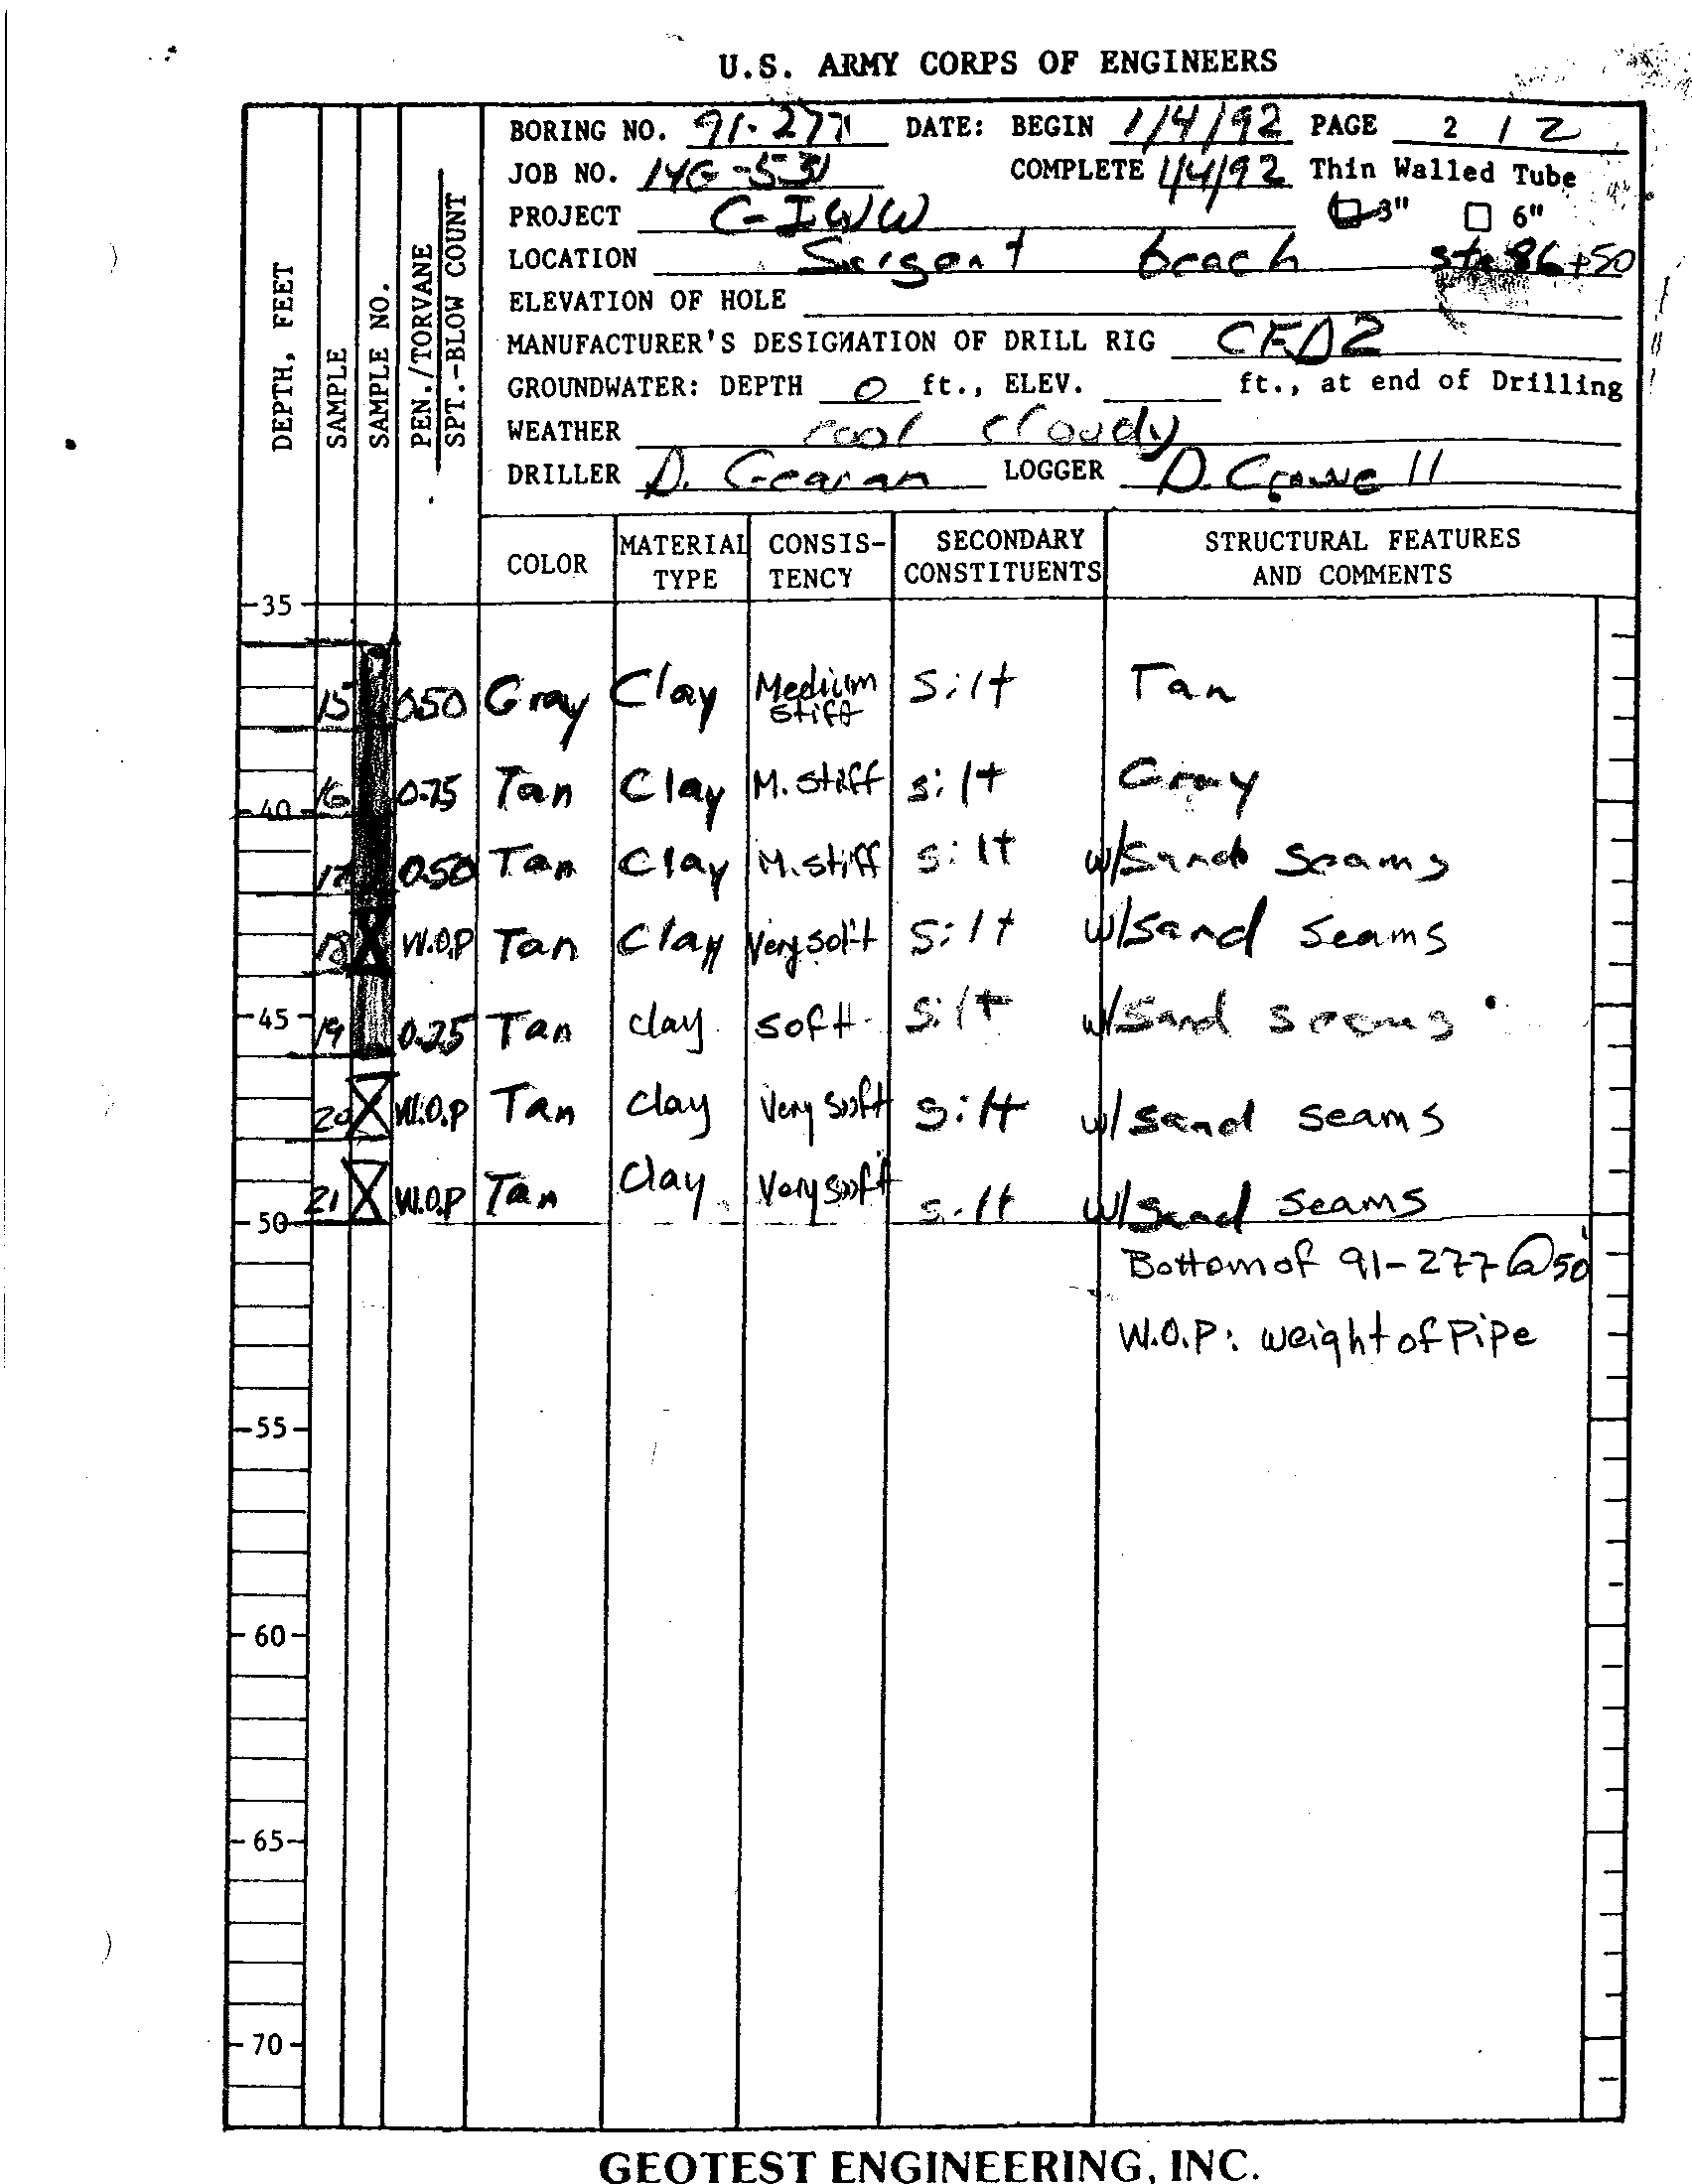 U.S. ARMY CORPS OF ENGINEERS
BORING NO. 91-277 DATE: BEGIN 1/4/92 PAGE 2 / 2
JOB NO. 14G-531 COMPLETE 1/4/92 Thin Walled Tube
PROJECT G-IWW 3" 6"
LOCATION Sargent beach sta 86+50
ELEVATION OF HOLE
MANUFACTURER'S DESIGNATION OF DRILL RIG
GROUNDWATER: DEPTH 0 ft., ELEV. ft., at end of Drilling
WEATHER cool cloudy
DRILLER D. LOGGER D. Crowell
DEPTH, FEET
SAMPLE
SAMPLE NO.
PEN./TORVANE
SPT.-BLOW COUNT
COLOR MATERIAL TYPE CONSIS-TENCY SECONDARY CONSTITUENTS STRUCTURAL FEATURES AND COMMENTS
35
15 0.50 Gray Clay Medium stiff Silt Tan
16 0.75 Tan Clay M. stiff silt Gray
40
17 0.50 Tan Clay M. stiff silt w/Sand Seams
18 W.O.P Tan Clay Very soft Silt w/sand seams
45 19 0.25 Tan clay soft silt w/sand seams
20 W.O.P Tan clay Very soft silt w/sand seams
21 W.O.P Tan Clay Very soft silt w/sand seams
50
Bottom of 91-277 @ 50'
W.O.P: weight of Pipe
55
60
65
70
GEOTEST ENGINEERING, INC.